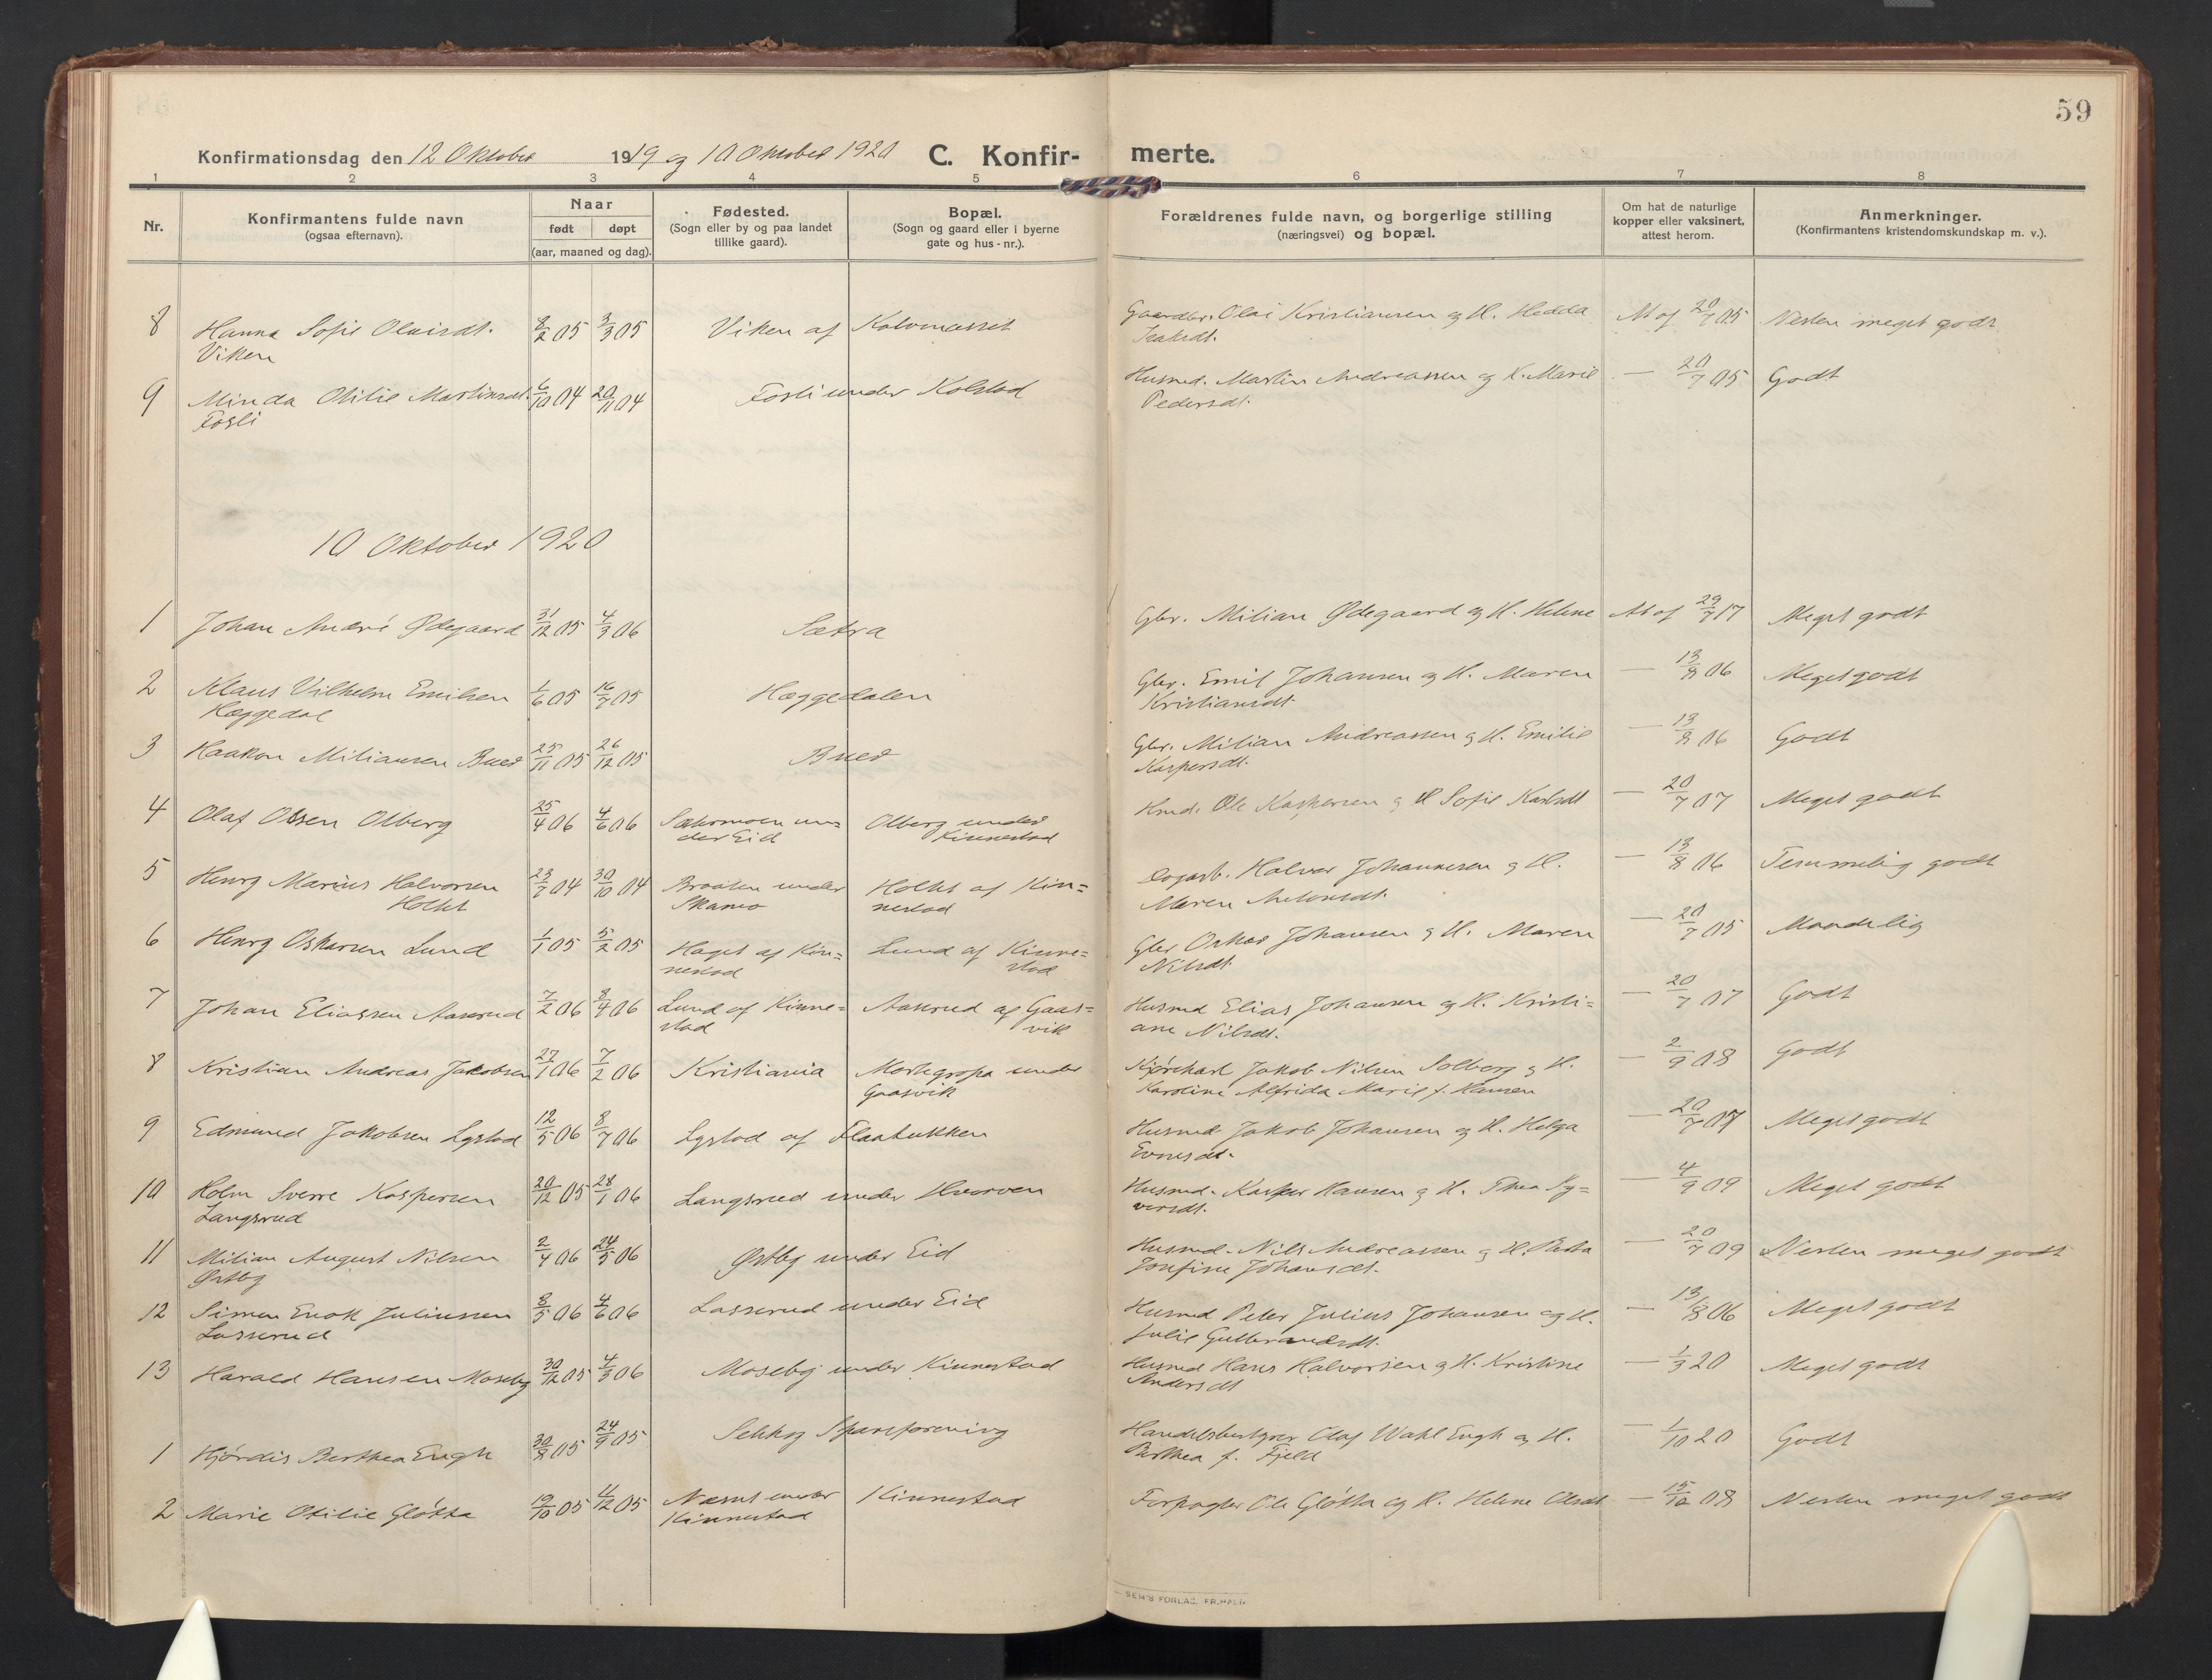 59
Konfirmationsdag den 12 Oktober 1919 og 10 Oktober 1920 C. Konfir- merte.
1 2 3 4 5 6 7 8
Nr.
Konfirmantens fulde navn
(ogsaa efternavn).
Naar
født døpt
(aar, maaned og dag).
Fødested.
(Sogn eller by og paa landet
tillike gaard).
Bopæl.
(Sogn og gaard eller i byerne
gate og hus-nr.).
Forældrenes fulde navn, og borgerlige stilling
(næringsvei) og bopæl.
Om hat de naturlige
kopper eller vaksinert,
attest herom.
Anmerkninger.
(Konfirmantens kristendomskundskap m. v.).
8 Hanna Sofie Olaisdt. 8/2 05 3/3 05 Viken af Gaardbr. Olai Kristiansen og H. Hedda At af 20/7 05 Nesten meget godt
Viken Isaksdt.
9 Minda Otilie Martinsdt. 6/10 04 20/11 04 Fosli under Kolstad Husmd. Martin Andreassen og H. Marie — 20/7 05 Godt
Fosli Pedersdt.
10 Oktober 1920
1 Johan André Ødegaard 31/12 05 4/3 06 Sætra Gbr. Milian Ødegaard og H. Helene At af 29/7 17 Meget godt
2 Klaus Vilhelm Emilsen 1/6 05 16/7 05 Hæggedalen Gbr. Emil Johansen og H. Maren — 13/8 06 Meget godt
Hæggedal Kristiansdt.
3 Haakon Miliansen Bued 25/11 05 26/12 05 Bued Gbr. Milian Andreassen og H. Emilie — 13/8 06 Godt
Kaspersdt.
4 Olaf Olsen Olberg 25/4 06 4/6 06 Sætermoen un= Olberg under Hmd. Ole Kaspersen og H Sofie Karlsdt — 20/7 07 Meget godt
der Eid Kinnestad
5 Henry Marius Halvorsen 23/7 04 30/10 04 Braaten under Holtet af Kin= Halvor Johannesen og H. — 13/8 06 Temmelig godt
Holtet nestad Maren Antonsdt.
6 Henry Oskarsen Lund 1/1 05 5/2 05 Haget af Kin= Lund af Kinne= Gbr Oskar Johansen og H. Maren — 20/7 05 Maadelig
nestad stad Nilsdt.
7 Johan Eliassen Aaserud 7/2 06 8/4 06 Lund af Kinne= Aaserud af Gaas= Husmd Elias Johansen og H. Kristi= — 20/7 07 Godt
stad vik ane Nilsdt.
8 Kristian Andreas Jakobsen 27/1 06 7/2 06 Kristiania Mørkgropa under Kjørekarl Jakob Nilsen Solberg og H. — 2/9 08 Godt
Gaasvik Karoline Alfrida Marie f. Hansen
9 Edmund Jakobsen Lystad 12/5 06 8/7 06 Lystad af Flaatukken Husmd. Jakob Johansen og H. Helga — 20/7 07 Meget godt
10 Holm Sverre Kaspersen 20/12 05 28/1 06 Langsrud under Hvorven Husmd. Kasper Hansen og H. Thea Sy= — 4/9 09 Meget godt
Langsrud versdt.
11 Milian August Nilsen 2/4 06 24/5 06 Østby under Eid Husmd. Nils Andreassen og H. — 20/7 09 Nesten meget godt
Østby Josefine Johansdt.
12 Simen Enok Juliussen 8/5 06 4/6 06 Lasserud under Eid Husmd Peter Julius Johansen og H. — 13/8 06 Meget godt
Lasserud Julie Gulbrandsdt.
13 Harald Hansen Moseby 30/12 05 4/3 06 Moseby under Kinnestad Husmd Hans Halvorsen og H. Kristine — 1/3 20 Meget godt
Andersdt
1 Hjørdis Berthea Engh 30/8 05 24/9 05 Selskog Spareforening Handelsbestyrer Olaf Wahl Engh og H. — 1/10 20 Godt
Berthea f. Fjeld
2 Marie Otilie Gløtta 19/10 05 11/12 05 under Kinnestad Forpagter Ole Gløtta og H. Helene Olsdt — 15/12 08 Nesten meget godt
Kinnestad
SEM'S FORLAG, FR.HALD